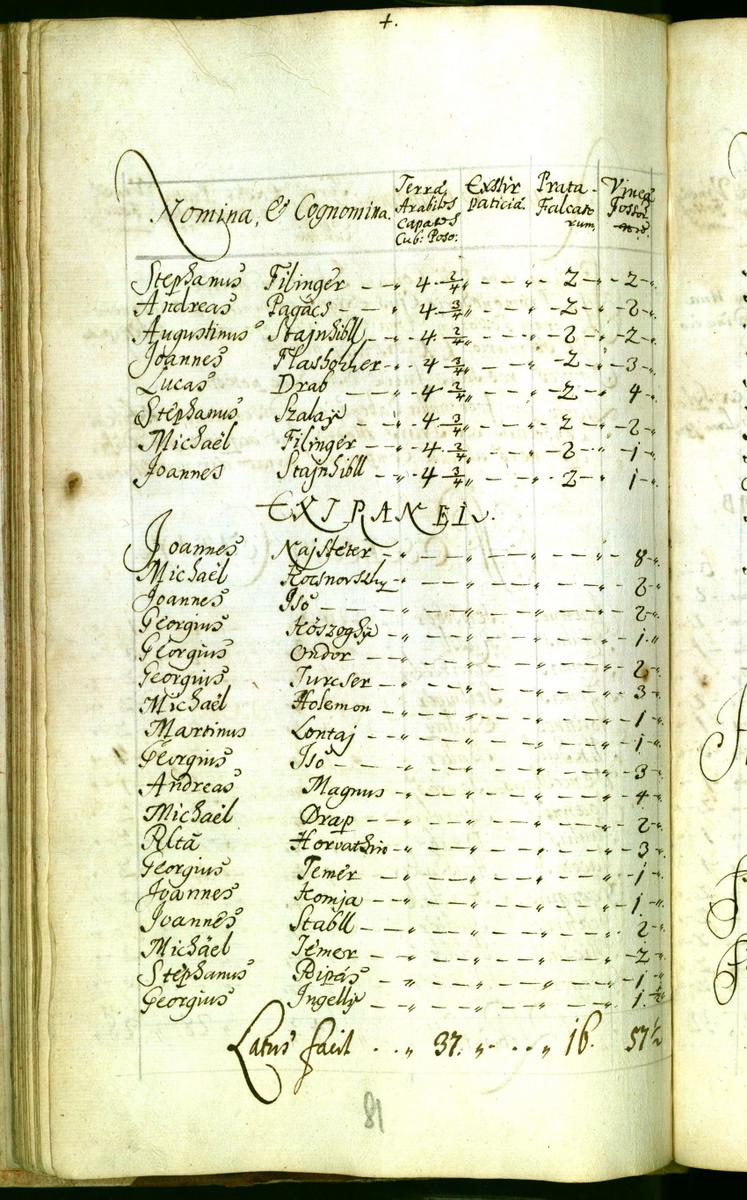 4.
Nomina, & Cognomina. Terrã Arabiles Capates Cub: Poso: Exstirpaticiã. Prata Falcatorum. Vineã
Stephanus Filinger — „ 4 2/4 „ — „ 2 — „ 2 — „
Andreas Pagács — „ 4 3/4 „ — „ 2 — „ 2 — „
Augustinus Stajnhibll — „ 4 2/4 „ — „ 2 — „ 2 — „
Joannes — „ 4 3/4 „ — „ 2 — „ 3 — „
Lucas Drab — „ 4 2/4 „ — „ 2 — „ 4 „
Stephanus Szalaÿ — „ 4 3/4 „ — „ 2 — „ 2 — „
Michaël Filinger — „ 4 2/4 „ — „ 2 — „ 1 — „
Joannes Stajnhibll — „ 4 3/4 „ — „ 2 — „ 1 — „
EXTRANEI.
Joannes Najsteter — „ — „ — „ — „ 8 — „
Michaël — „ — „ — „ — „ 2 — „
Joannes Isó — „ — „ — „ — „ 2 — „
Georgius Kószoghÿ — „ — „ — „ — „ 1 „
Georgius Ondor — „ — „ — „ — „ 2 — „
Georgius Turcser — „ — „ — „ — „ 3 — „
Michaël Holemon — „ — „ — „ — „ 1 — „
Martinus Lontaj — „ — „ — „ — „ 1 — „
Georgius Isó — „ — „ — „ — „ 3 — „
Andreas Magnus — „ — „ — „ — „ 4 — „
Michaël Drap — „ — „ — „ — „ 2 — „
Horvathin — „ — „ — „ — „ 3 — „
Georgius Temér — „ — „ — „ — „ 1 — „
Joannes Komja — „ — „ — „ — „ 1 — „
Joannes Stabll — „ — „ — „ — „ 2 — „
Michaël Témer — „ — „ — „ — „ 2 — „
Stephanus Pipás — „ — „ — „ — „ 1 — „
Georgius Ingellÿ — „ — „ — „ — „ 1 1/2 „
Latus facit . . „ 37. „ . . . „ 16. 57 1/2
81